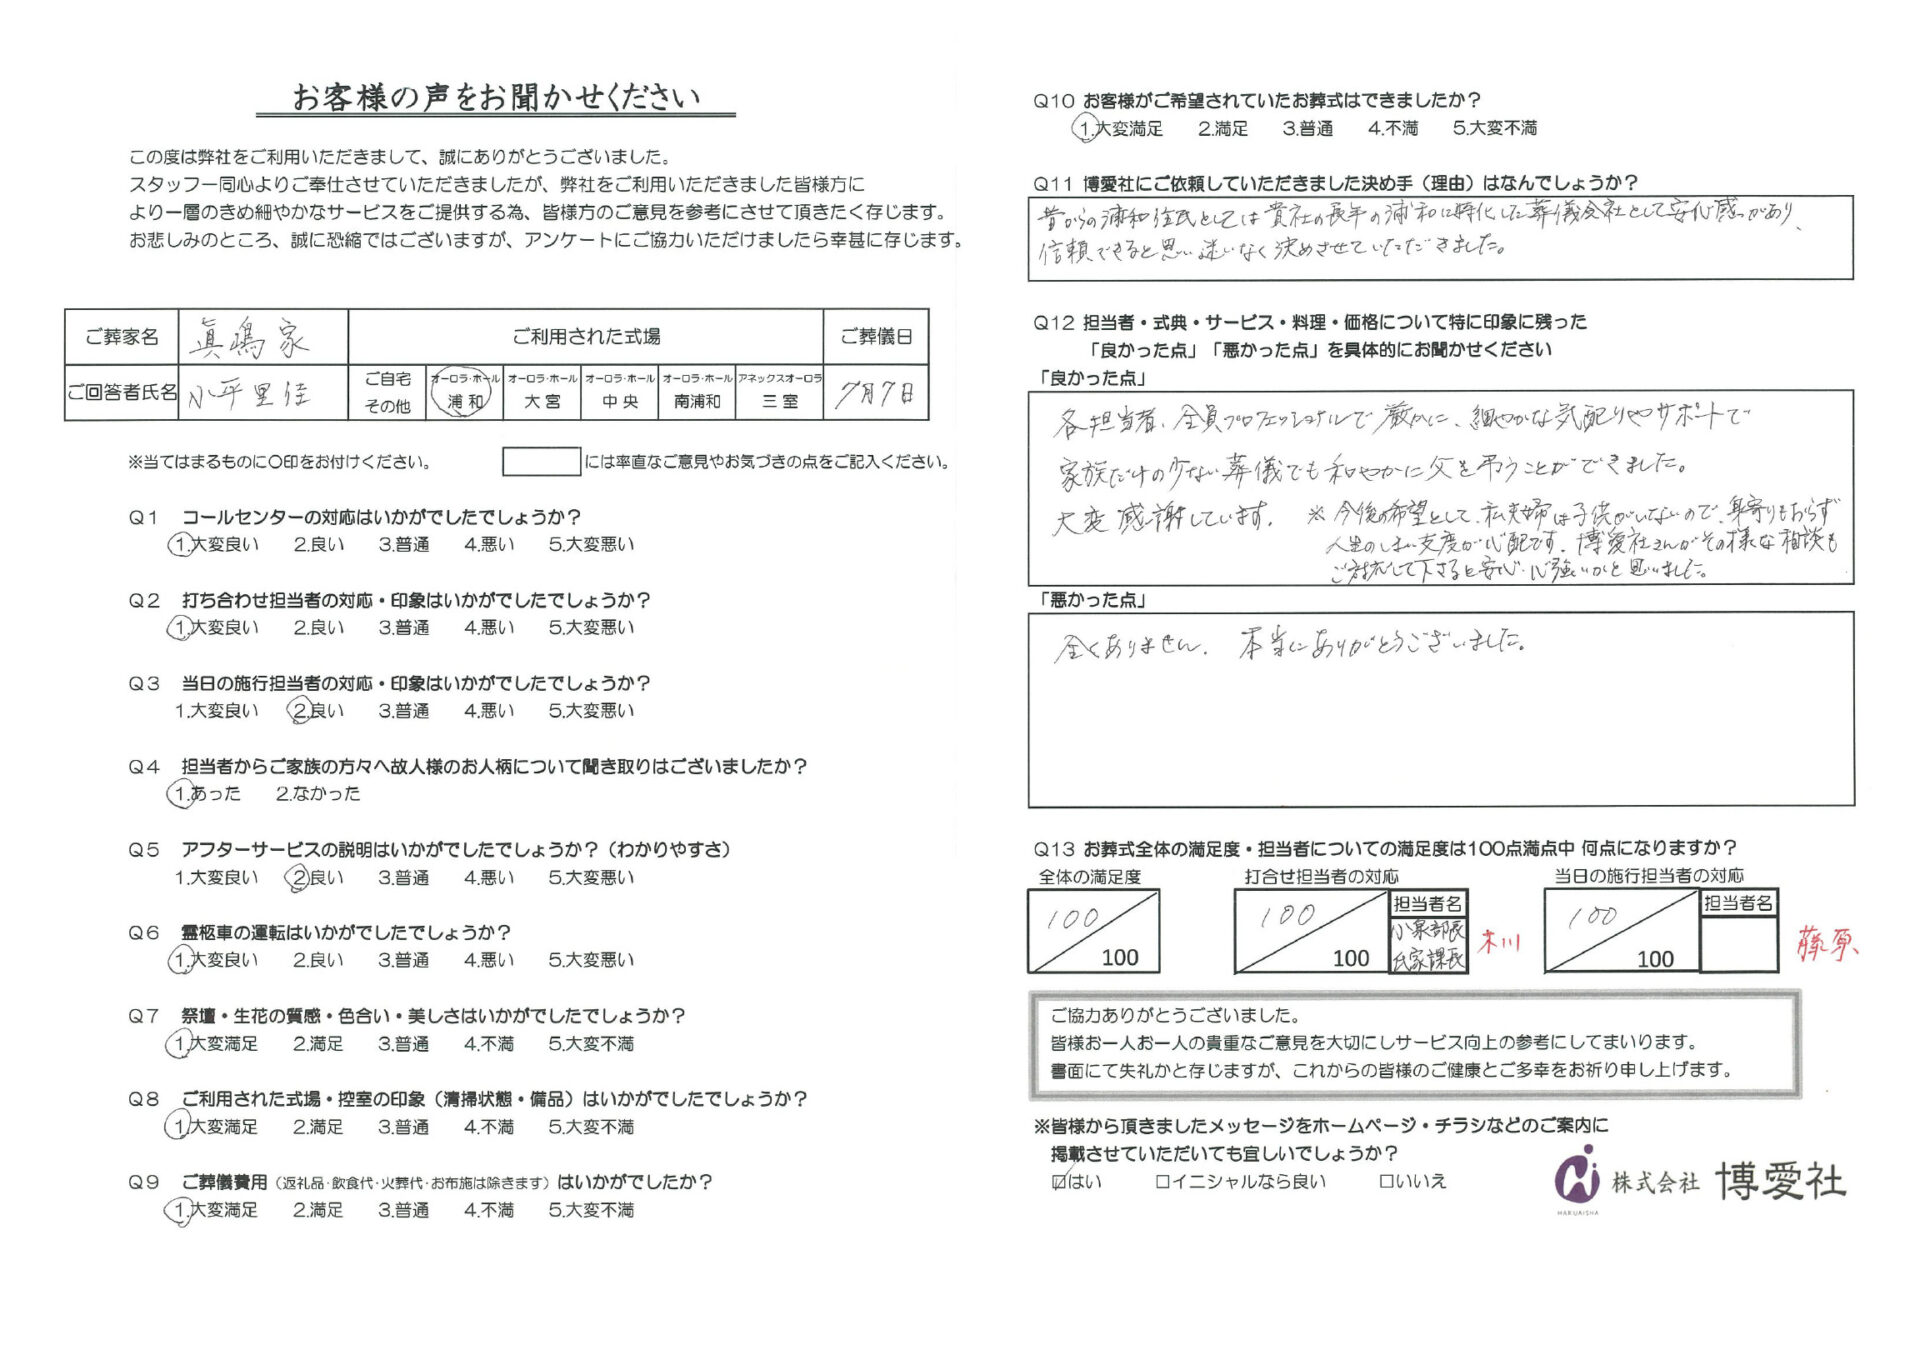 お客様の声をお聞かせください
この度は弊社をご利用いただきまして、誠にありがとうございました。
スタッフ一同心よりご奉仕させていただきましたが、弊社をご利用いただきました皆様方に
より一層のきめ細やかなサービスをご提供する為、皆様方のご意見を参考にさせて頂きたく存じます。
お悲しみのところ、誠に恐縮ではございますが、アンケートにご協力いただけましたら幸甚に存じます。
ご葬家名 眞嶋家 ご利用された式場 ご葬儀日
ご回答者氏名 小平里佳 ご自宅 その他 オーロラ・ホール 浦和 オーロラ・ホール 大宮 オーロラ・ホール 中央 オーロラ・ホール 南浦和 アネックスオーロラ 三室 7月7日
※当てはまるものに〇印をお付けください。 には率直なご意見やお気づきの点をご記入ください。
Q1 コールセンターの対応はいかがでしたでしょうか？
1.大変良い 2.良い 3.普通 4.悪い 5.大変悪い
Q2 打ち合わせ担当者の対応・印象はいかがでしたでしょうか？
1.大変良い 2.良い 3.普通 4.悪い 5.大変悪い
Q3 当日の施行担当者の対応・印象はいかがでしたでしょうか？
1.大変良い 2.良い 3.普通 4.悪い 5.大変悪い
Q4 担当者からご家族の方々へ故人様のお人柄について聞き取りはございましたか？
1.あった 2.なかった
Q5 アフターサービスの説明はいかがでしたでしょうか？（わかりやすさ）
1.大変良い 2.良い 3.普通 4.悪い 5.大変悪い
Q6 霊柩車の運転はいかがでしたでしょうか？
1.大変良い 2.良い 3.普通 4.悪い 5.大変悪い
Q7 祭壇・生花の質感・色合い・美しさはいかがでしたでしょうか？
1.大変満足 2.満足 3.普通 4.不満 5.大変不満
Q8 ご利用された式場・控室の印象（清掃状態・備品）はいかがでしたでしょうか？
1.大変満足 2.満足 3.普通 4.不満 5.大変不満
Q9 ご葬儀費用（返礼品・飲食代・火葬代・お布施は除きます）はいかがでしたか？
1.大変満足 2.満足 3.普通 4.不満 5.大変不満
Q10 お客様がご希望されていたお葬式はできましたか？
1.大変満足 2.満足 3.普通 4.不満 5.大変不満
Q11 博愛社にご依頼していただきました決め手（理由）はなんでしょうか？
昔からの浦和住民としては貴社の長年の浦和に特化した葬儀会社として安心感があり、
信頼できると思い迷いなく決めさせていただきました。
Q12 担当者・式典・サービス・料理・価格について特に印象に残った
「良かった点」「悪かった点」を具体的にお聞かせください
「良かった点」
各担当者、全員プロフェッショナルで厳かに、細やかな気配りやサポートで
家族だけの少ない葬儀でも和やかに父を弔うことができました。
大変感謝しています。 ※今後の希望として、私夫婦は子供がいないので、身寄りもおらず
人生のしまい支度が心配です。博愛社さんがその様な相談も
ご対応して下さると安心・心強いかと思いました。
「悪かった点」
全くありません。 本当にありがとうございました。
Q13 お葬式全体の満足度・担当者についての満足度は100点満点中 何点になりますか？
全体の満足度 打合せ担当者の対応 当日の施行担当者の対応
100 100 担当者名 100 担当者名
小泉部長 木川 藤原
100 100 氏家課長 100
ご協力ありがとうございました。
皆様お一人お一人の貴重なご意見を大切にしサービス向上の参考にしてまいります。
書面にて失礼かと存じますが、これからの皆様のご健康とご多幸をお祈り申し上げます。
※皆様から頂きましたメッセージをホームページ・チラシなどのご案内に
掲載させていただいても宜しいでしょうか？
☑はい □イニシャルなら良い □いいえ
株式会社 博愛社
HAKUAISHA